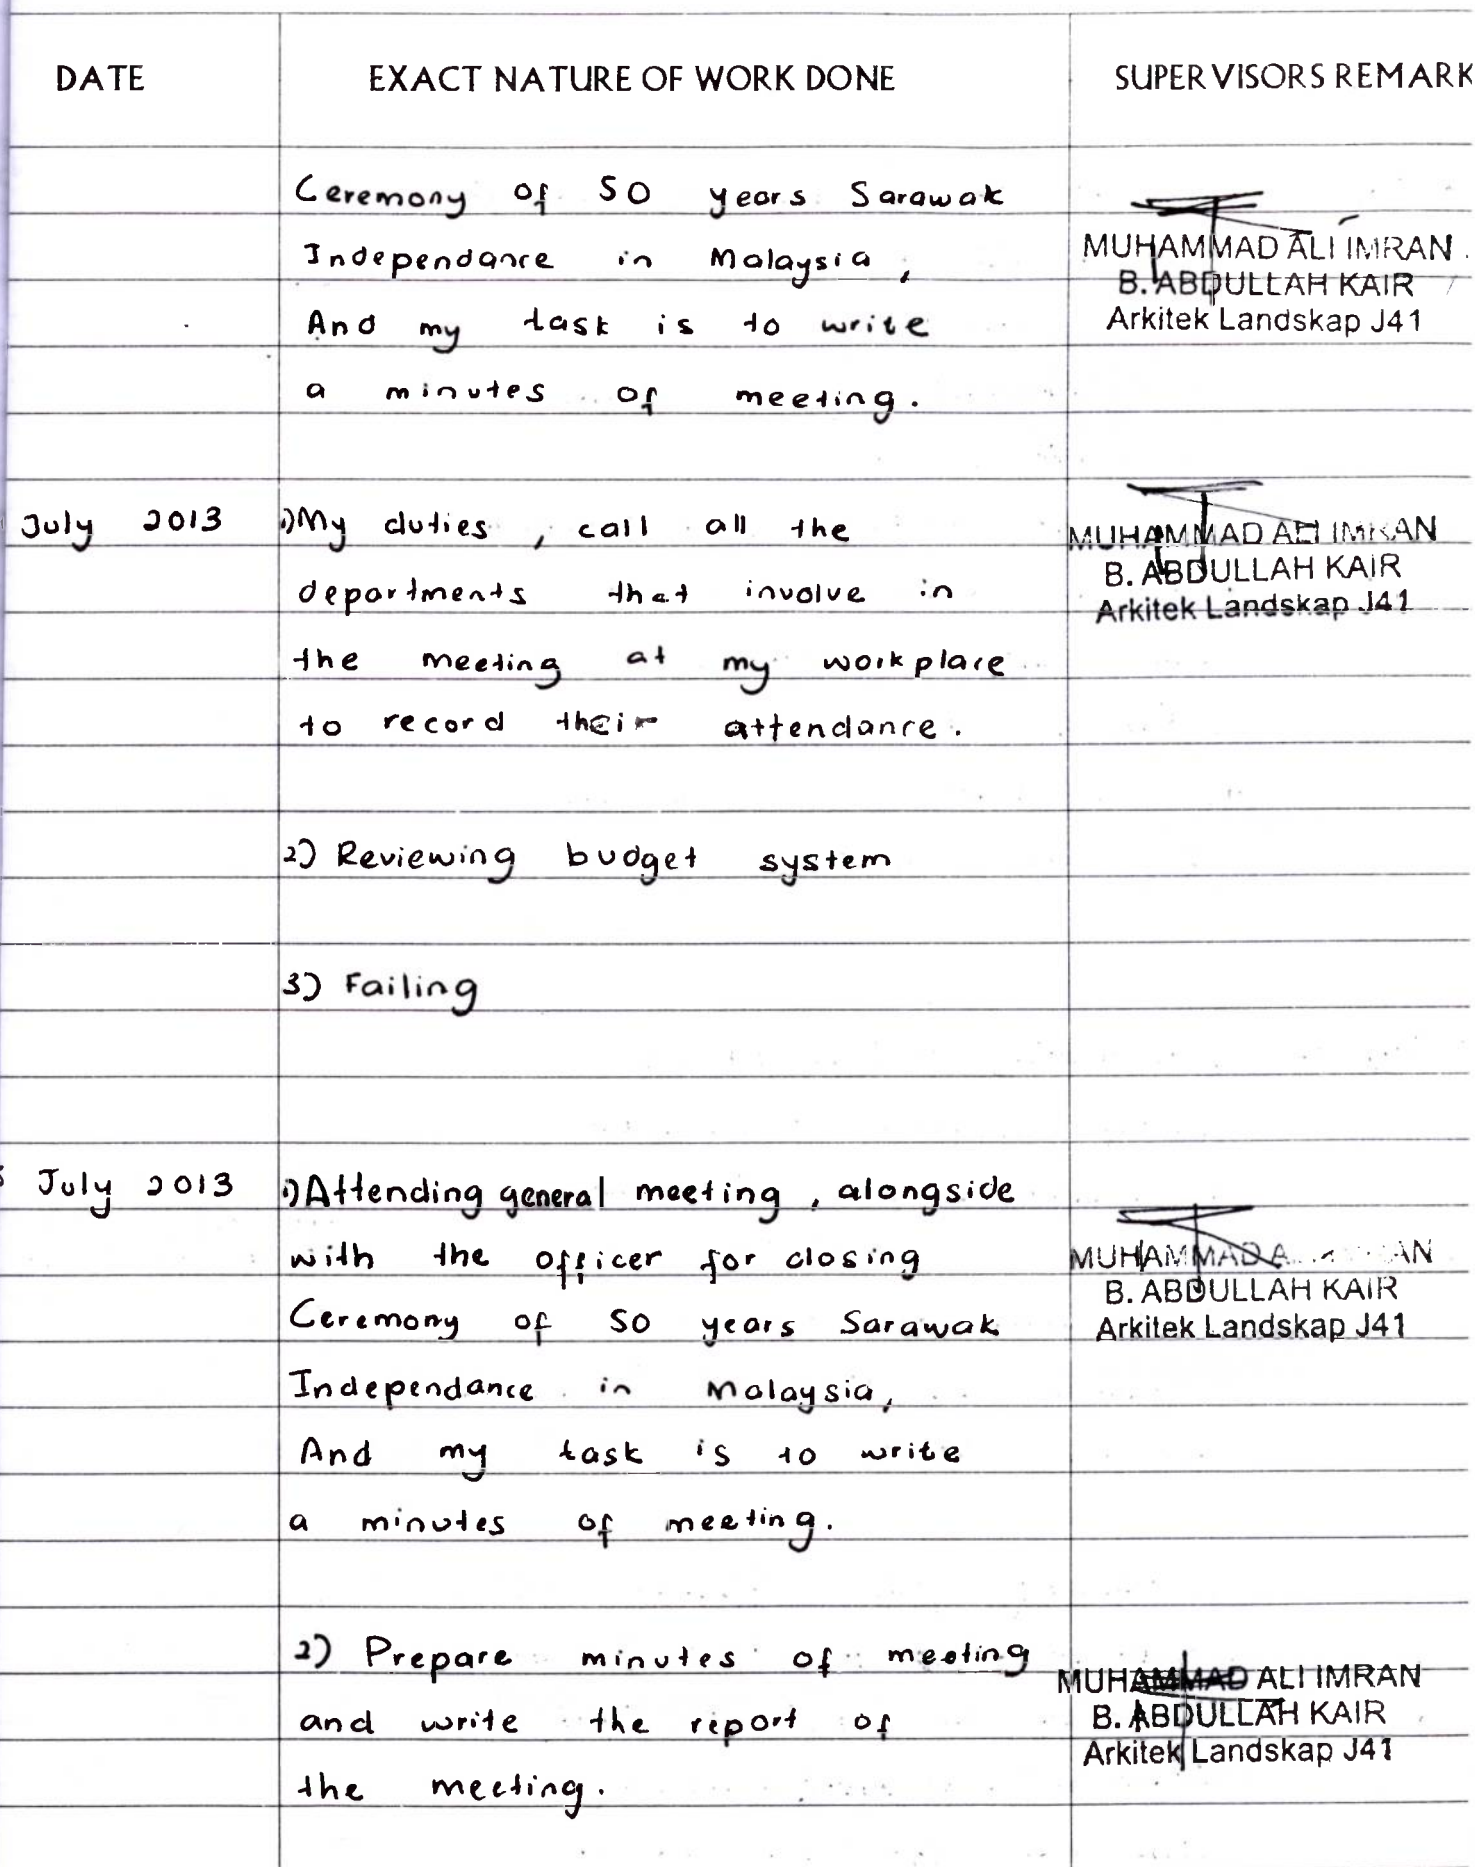 DATE EXACT NATURE OF WORK DONE SUPERVISORS REMARK
Ceremony of 50 years Sarawak
Independance in Malaysia,
And my task is to write
a minutes of meeting.
MUHAMMAD ALI IMRAN
B. ABDULLAH KAIR
Arkitek Landskap J41
July 2013 1) My duties, call all the
departments that involve in
the meeting at my workplace
to record their attendance.
MUHAMMAD ALI IMRAN
B. ABDULLAH KAIR
Arkitek Landskap J41
2) Reviewing budget system
3) Failing
July 2013 1) Attending general meeting, alongside
with the officer for closing
Ceremony of 50 years Sarawak
Independance in Malaysia,
And my task is to write
a minutes of meeting.
MUHAMMAD
B. ABDULLAH KAIR
Arkitek Landskap J41
2) Prepare minutes of meeting
and write the report of
the meeting.
MUHAMMAD ALI IMRAN
B. ABDULLAH KAIR
Arkitek Landskap J41